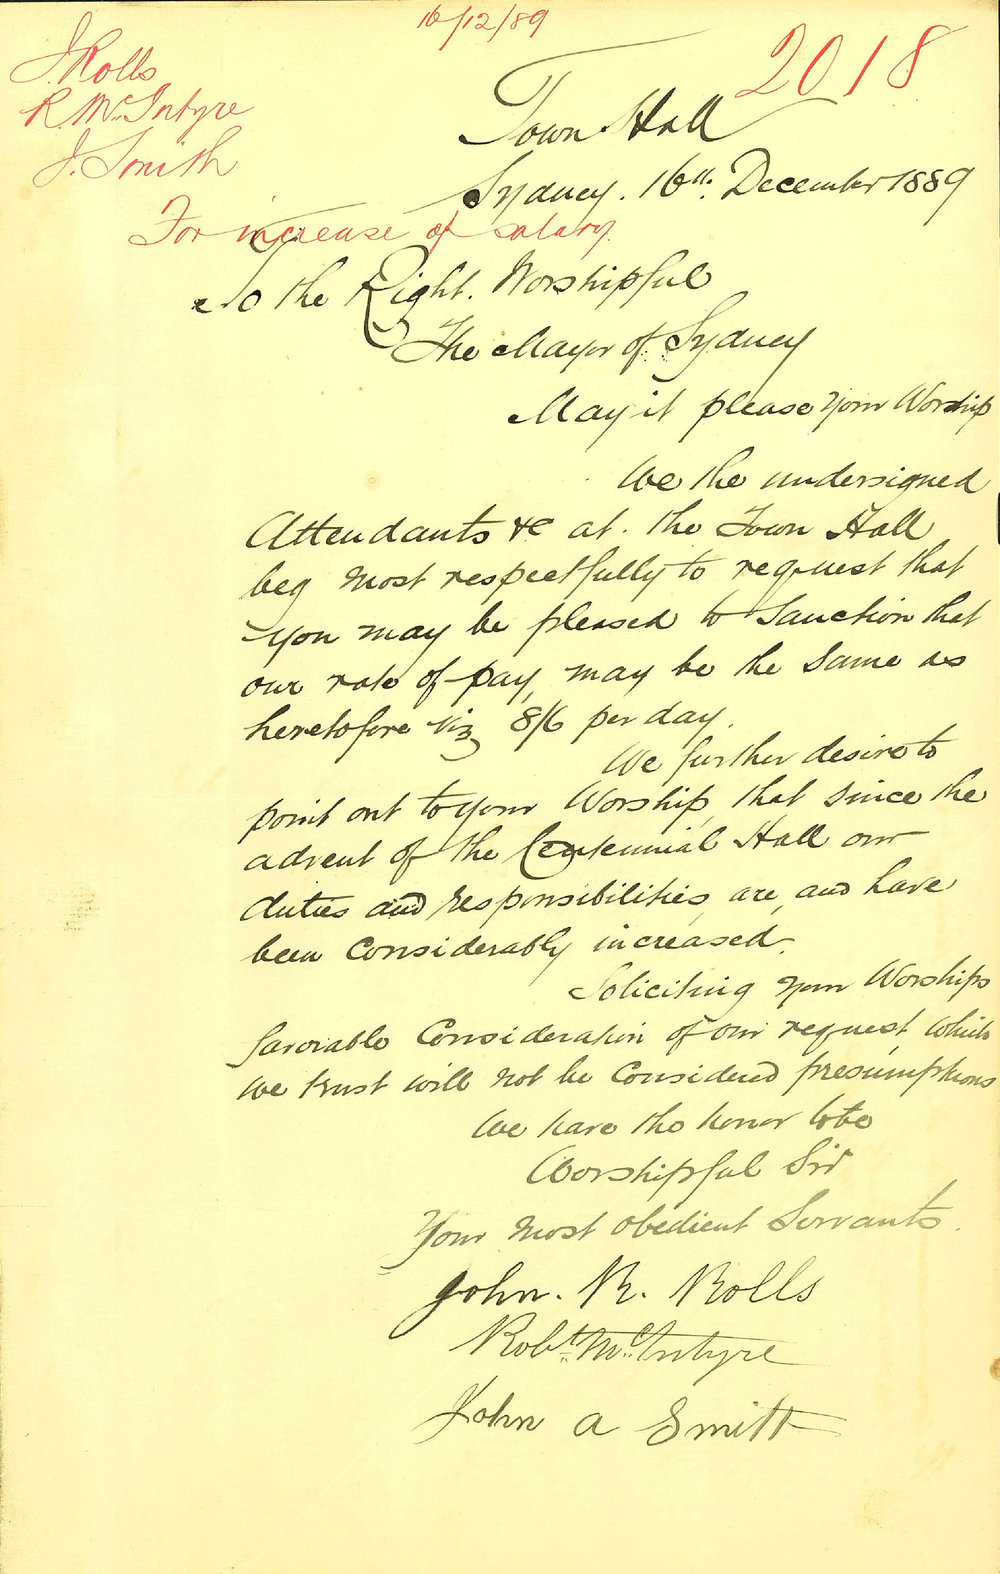 16/12/89
2018
J. Rolls
R. McIntyre
J. Smith
For increase of salary
Town Hall
Sydney. 16th. December 1889
To the Right. Worshipful
The Mayor of Sydney
May it please Your Worship
We the undersigned
Attendants &c at. the Town Hall
beg most respectfully to request that
you may be pleased to Sanction that
our rate of pay, may be the same as
heretofore viz 8/6 per day.
We further desire to
point out to your Worship, that since the
advent of the Centennial Hall our
duties and responsibilities, are, and have
been Considerably increased.
Soliciting your Worships
favorable Consideration of our request, which
we trust will not be Considered presumptious
We have the honor to be
Worshipful Sir
Your most obedient Servants.
John. R. Rolls
Robt. McIntyre
John A Smith